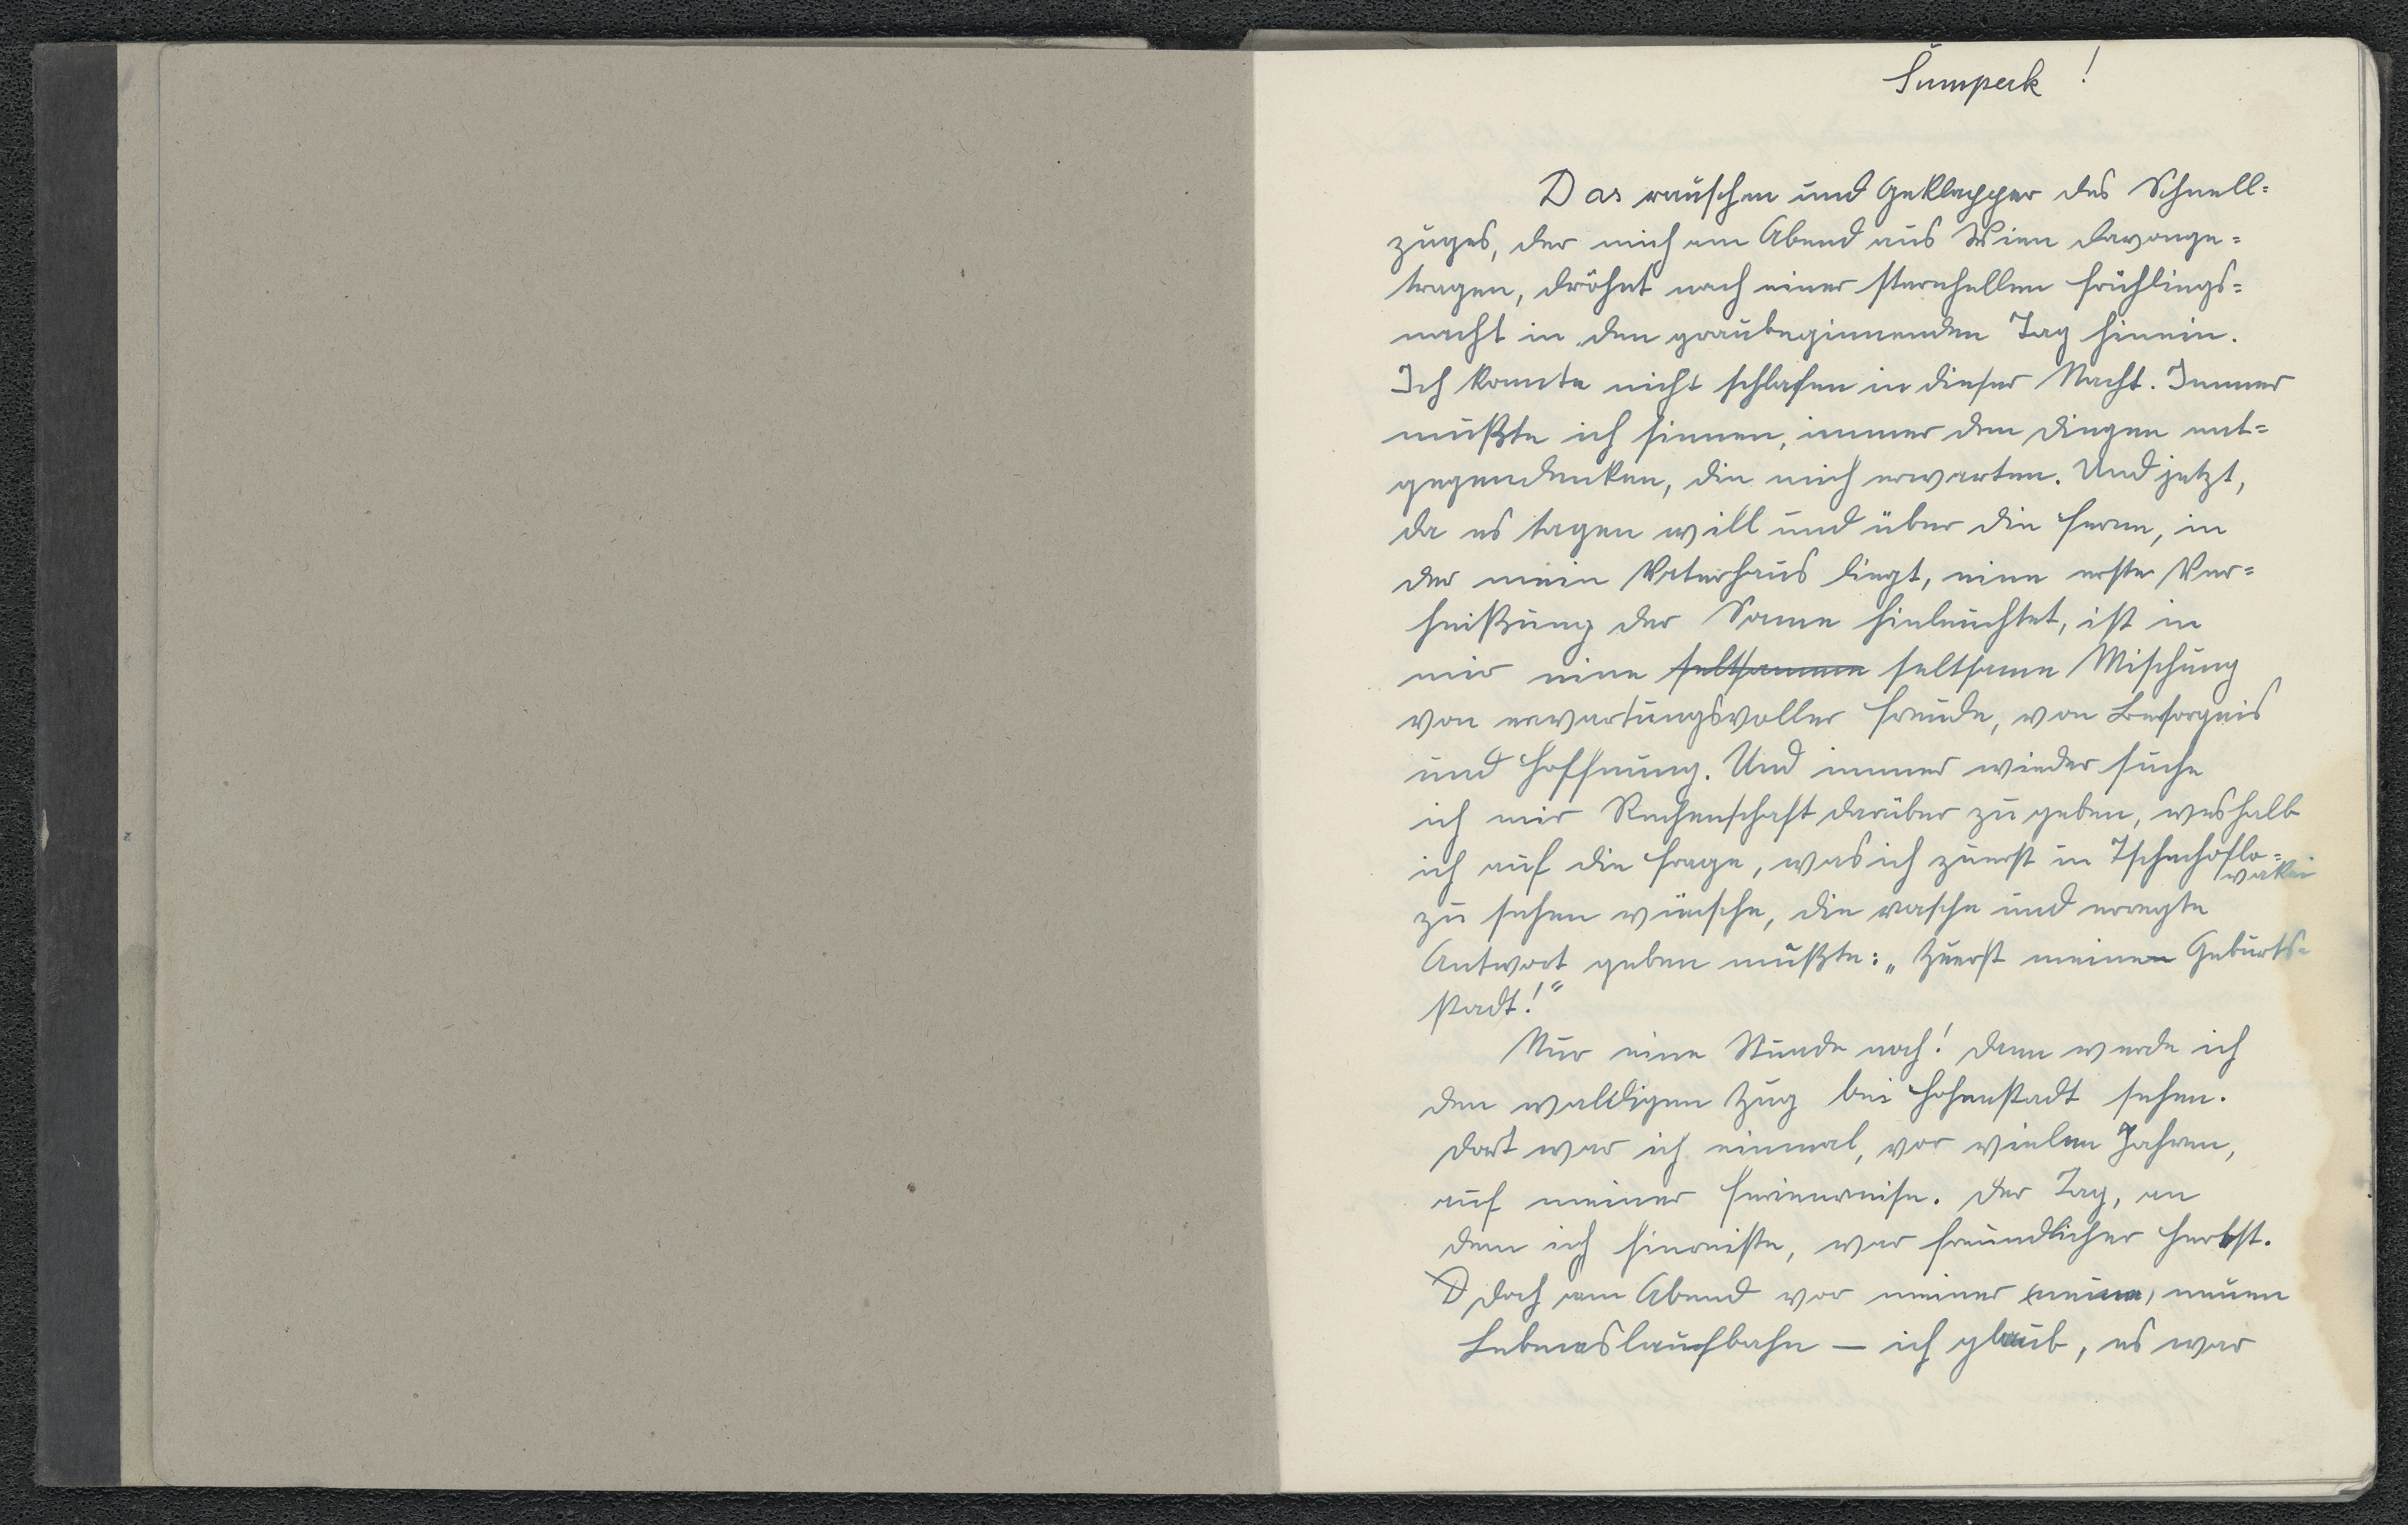 Šumperk !
Das rauschen und Geklapper des Schnell=
zuges, der mich am Abend aus Wien davonge=
tragen, dröhnt nach einer sternhellen Frühlings=
nacht in den graubeginnenden Tag hinein.
Ich konnte nicht schlafen in dieser Nacht. Immer
mußte ich sinnen, immer den Dingen ent=
gegendenken, die mich erwarten. Und jetzt,
da es tagen will und über die Ferne, in
der mein Vaterhaus liegt, eine erste Ver=
heißung der Sonne hinleuchtet, ist in
mir eine seltsamme seltsame Mischung
von erwartungsvoller Freude, von Besorgnis
und Hoffnung. Und immer wieder suche
ich mir Rechenschaft darüber zu geben, weshalb
ich auf die Frage, was ich zuerst in Tschechoslo=
wakei
zu sehen wünsche, die rasche und erregte
Antwort geben mußte: „Zuerst meinen Geburts=
stadt!"
Nur eine Stunde noch! Dann werde ich
den waldigen Zug bei Hohenstadt sehen.
Dort war ich einmal, vor vielen Jahren,
auf meiner Ferienreise. Der Tag, an
dem ich hinreiste, war freundlicher Herbst.
D Doch am Abend vor meiner (meine) neuen
Lebenslaufbahn — ich glaub, es war